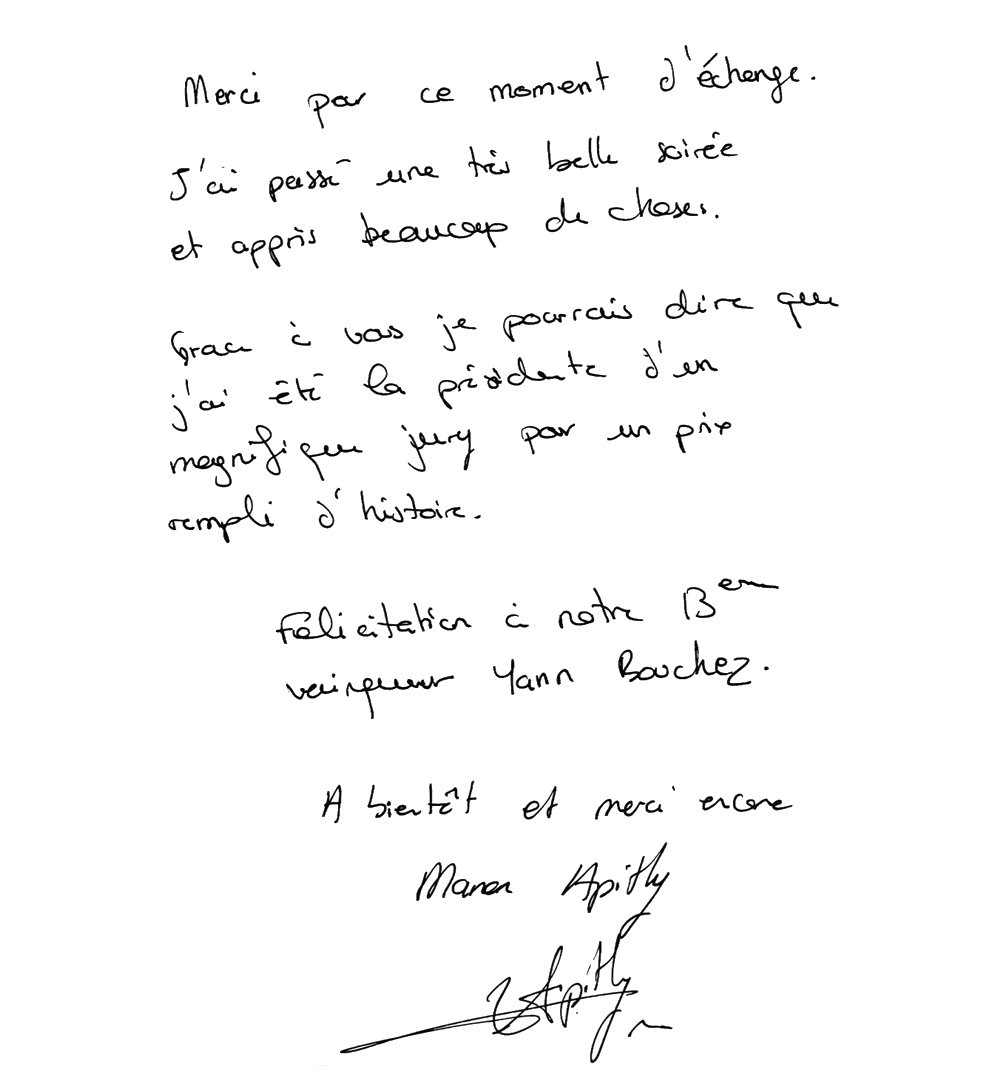 Merci pour ce moment d'échange.
J'ai passé une très belle soirée
et appris beaucoup de choses.
Grace à vous je pourrais dire que
j'ai été la présidente d'un
magnifique jury pour un prix
rempli d'histoire.
Félicitation à notre 13em
vainqueur Yann Bouchez.
A bientôt et merci encore
Manon Apithy
Apithy